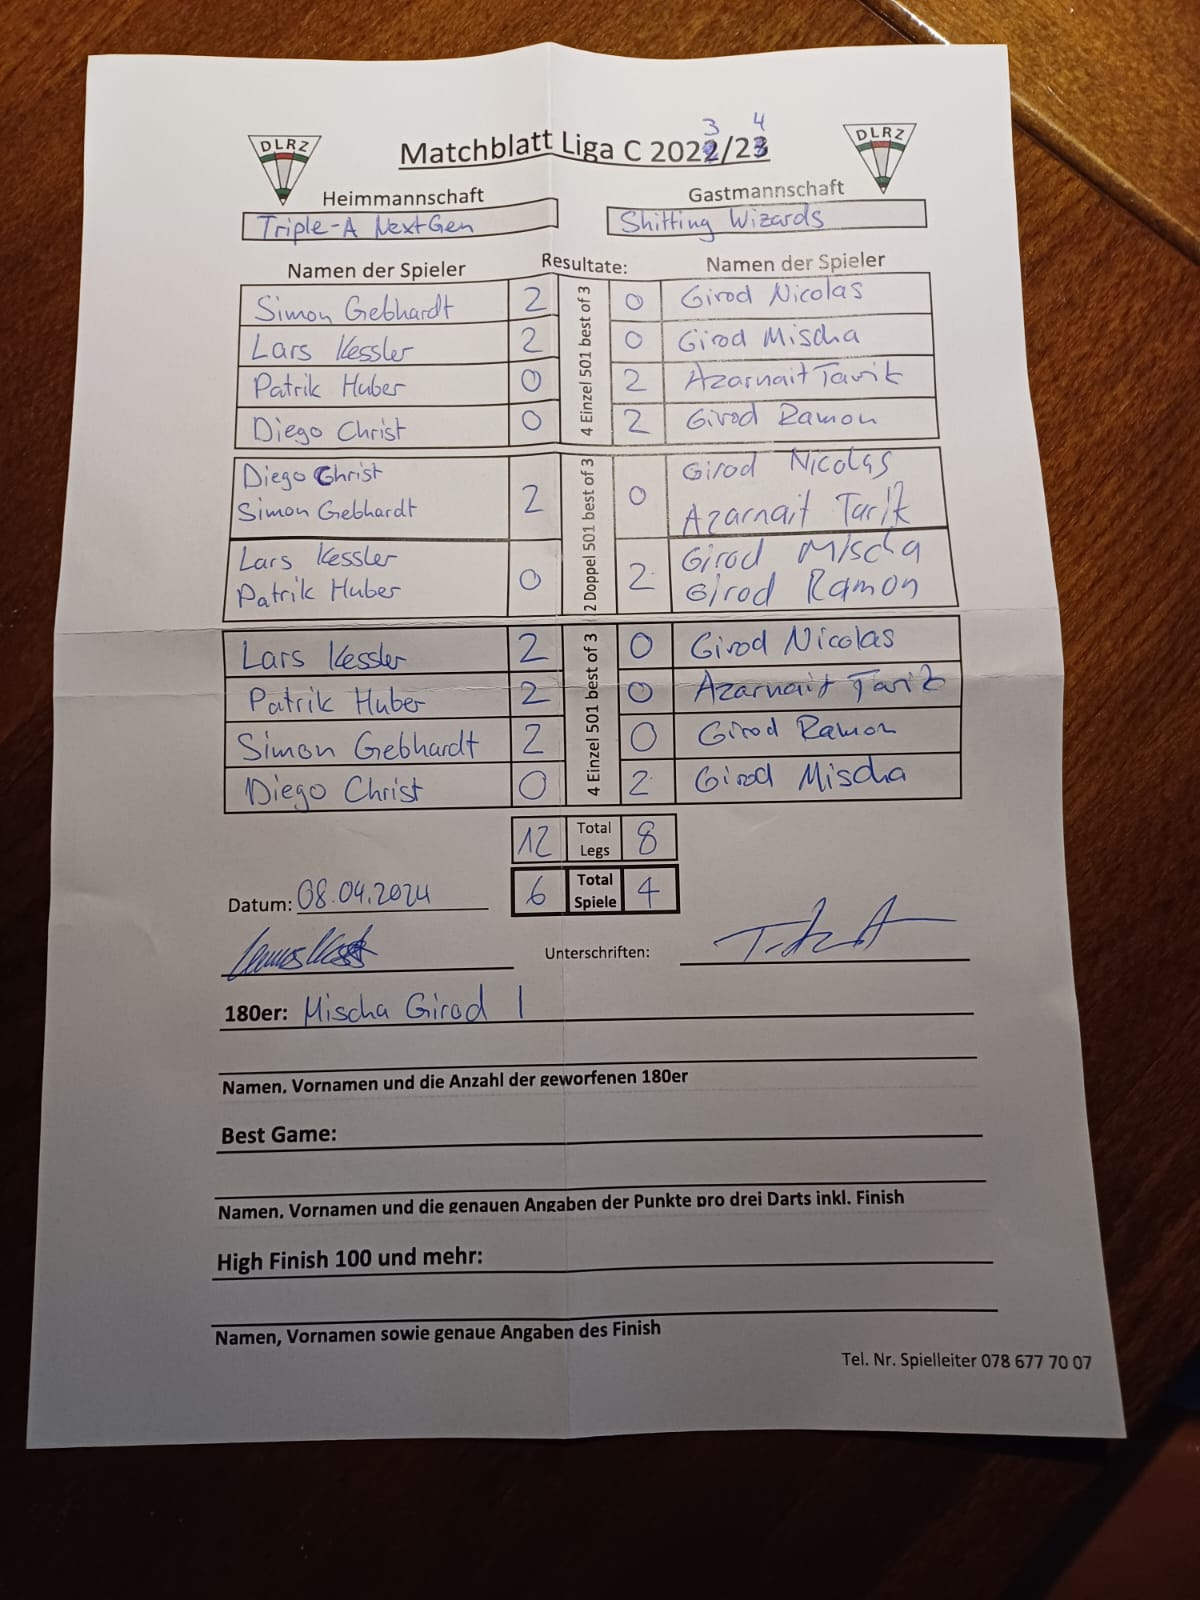 DLRZ
DLRZ
3 4
Matchblatt Liga C 2022/23
Heimmannschaft Gastmannschaft
Triple-A NextGen Shitting Wizards
Namen der Spieler Resultate: Namen der Spieler
4 Einzel 501 best of 3
Simon Gebhardt 2 0 Girod Nicolas
Lars Kessler 2 0 Girod Mischa
Patrik Huber 0 2 Azarnait Tarik
Diego Christ 0 2 Girod Ramon
2 Doppel 501 best of 3
Diego Christ Girod Nicolas
2 0
Simon Gebhardt Azarnait Tarik
Lars Kessler Girod Mischa
0 2
Patrik Huber Girod Ramon
4 Einzel 501 best of 3
Lars Kessler 2 0 Girod Nicolas
Patrik Huber 2 0 Azarnait Tarik
Simon Gebhardt 2 0 Girod Ramon
Diego Christ 0 2 Girod Mischa
12 Total Legs 8
Datum: 08.04.2024 6 Total Spiele 4
Unterschriften:
180er: Mischa Girod 1
Namen, Vornamen und die Anzahl der geworfenen 180er
Best Game:
Namen, Vornamen und die genauen Angaben der Punkte pro drei Darts inkl. Finish
High Finish 100 und mehr:
Namen, Vornamen sowie genaue Angaben des Finish
Tel. Nr. Spielleiter 078 677 70 07